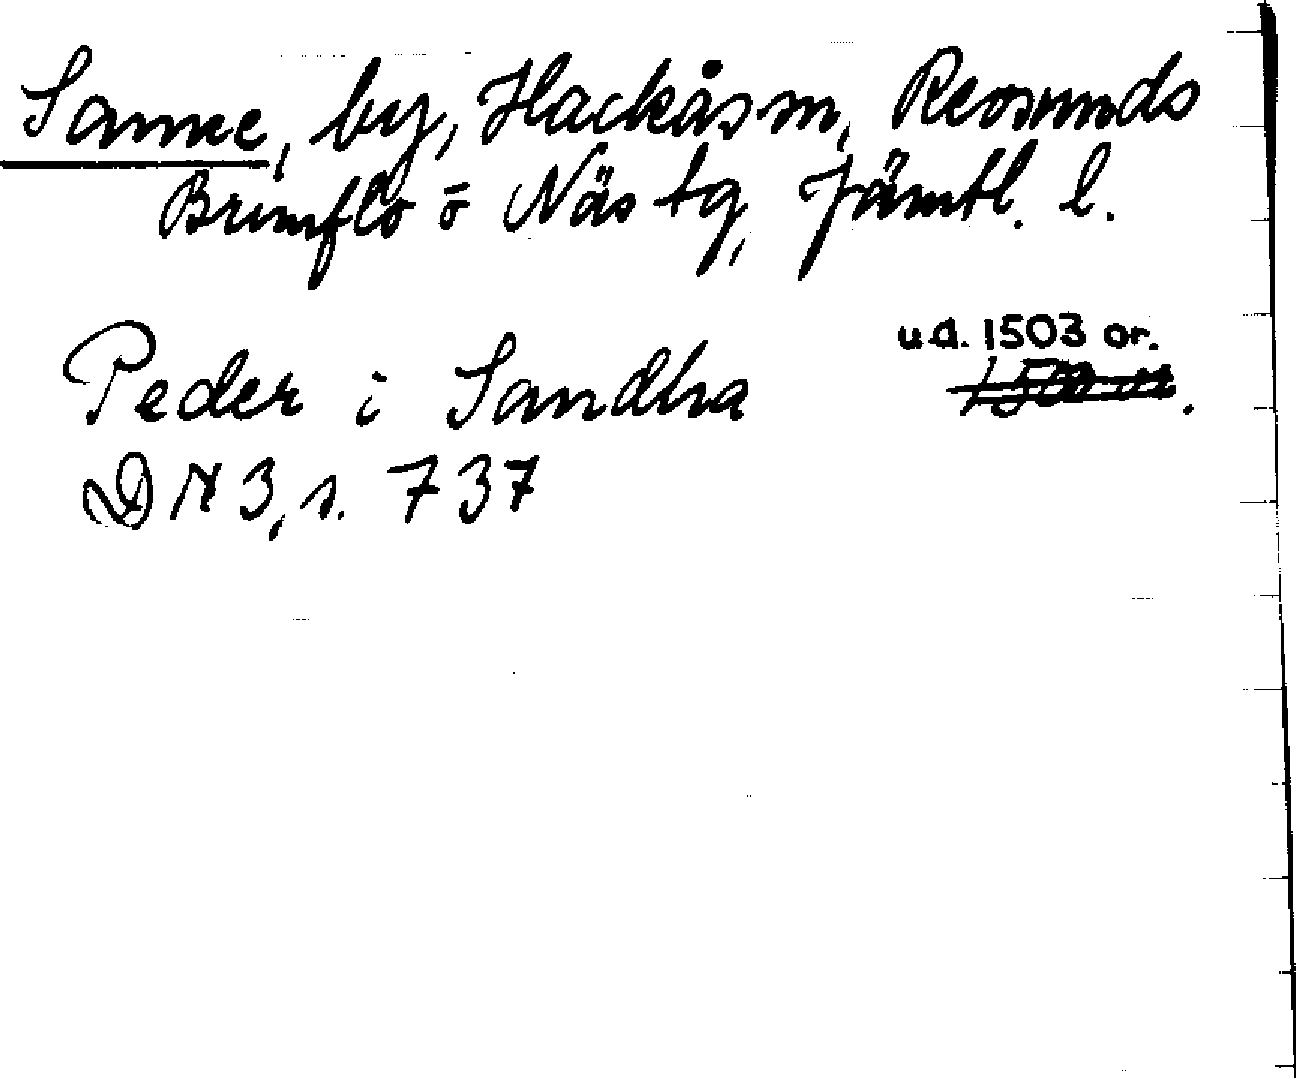 Sanne, by, Hackås sn, Revsunds
Brunflo o Näs tg, Jämtl. l.
u.d. 1503 or.
Peder i Sandha
DN 3, s. 737